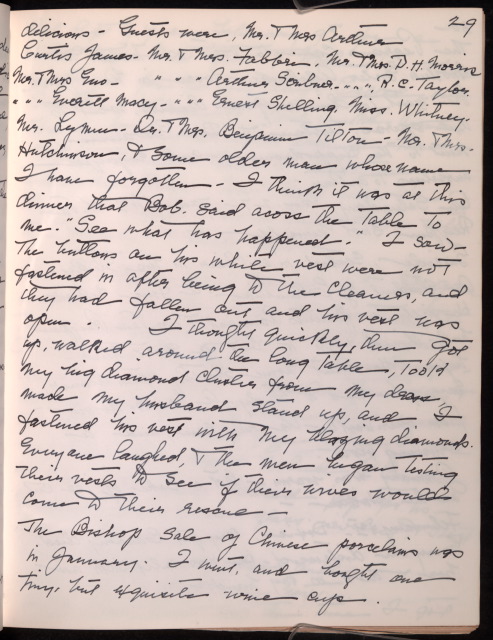 29
delicious - Guests were, Mr. & Mrs Arthur
Curtis James - Mr. & Mrs. Fabbri, Mr. & Mrs. D. H. Morris
Mr. & Mrs Eno - " " " Arthur Scribner - " " ", R. C. Taylor.
" " " Everitt Macy - " " " Ernest Shelling, Miss. Whitney -
Mr. Lyman - Dr. & Mrs. Benjamin Tilton - Mr. & Mrs -
Hutchinson, & some older man whose name
I have forgotten - I think it was at this
dinner that Bob. said acoss the table to
me. "See what has happened." I saw -
the buttons on his white vest were not
fastened in after being to the cleaners, and
they had fallen out and his vest was
open. I thought quickly, then got
up, walked around the long table, took
my big diamond cluster from my dress,
made my husband stand up, and I
fastened his vest with my blazing diamonds.
Everyone laughed, & the men began testing
their vests to see if their wives would
come to their rescue -
The Bishop Sale of Chinese porcelains was
in January. I went, and bought one
tiny, but exquisite wine cup.